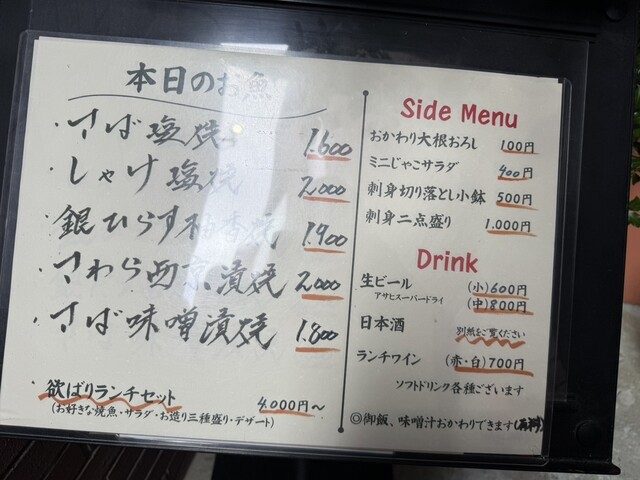 本日のお魚
・さば塩焼 1.600
・しゃけ塩焼 2,000
・銀ひらす柚香焼 1.900
・さわら西京漬焼 2,000
・さば味噌漬焼 1.800
欲ばりランチセット 4.000円〜
(お好きな焼魚・サラダ・お造り三種盛り・デザート)
Side Menu
おかわり大根おろし 100円
ミニじゃこサラダ 400円
刺身切り落とし小鉢 500円
刺身二点盛り 1.000円
Drink
生ビール (小)600円
アサヒスーパードライ (中)800円
日本酒 別紙をご覧ください
ランチワイン (赤・白)700円
ソフトドリンク各種ございます
◎御飯、味噌汁おかわりできます(有料)